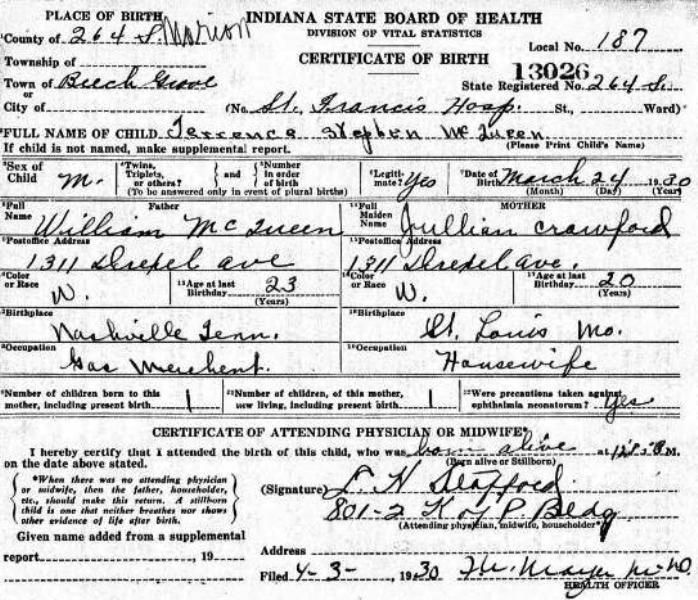 PLACE OF BIRTH
INDIANA STATE BOARD OF HEALTH
County of 264 S. Marion
DIVISION OF VITAL STATISTICS
Local No. 187
Township of
CERTIFICATE OF BIRTH
13026
Town of Beech Grove
State Registered No. 264 S.
or
City of (No. St. Francis Hosp. St., Ward)
FULL NAME OF CHILD Terrence Stephen McQueen
If child is not named, make supplemental report. (Please Print Child's Name)
Sex of Child M.
Twins, Triplets, or others? and Number in order of birth
(To be answered only in event of plural births)
Legitimate? Yes
Date of Birth March 24 1930
(Month) (Day) (Year)
Full Name Father William McQueen
Full Maiden Name MOTHER Jullian Crawford
Postoffice Address 1311 Drexel Ave
Postoffice Address 1311 Drexel Ave.
Color or Race W. Age at last Birthday 23 (Years)
Color or Race W. Age at last Birthday 20 (Years)
Birthplace Nashville Tenn.
Birthplace St. Louis Mo.
Occupation Gas Merchent.
Occupation Housewife
Number of children born to this mother, including present birth 1
Number of children, of this mother, now living, including present birth 1
Were precautions taken against ophthalmia neonatorum? Yes
CERTIFICATE OF ATTENDING PHYSICIAN OR MIDWIFE*
I hereby certify that I attended the birth of this child, who was born alive at M.
on the date above stated. (Born alive or Stillborn)
*When there was no attending physician
or midwife, then the father, householder,
etc., should make this return. A stillborn
child is one that neither breathes nor shows
other evidence of life after birth.
(Signature)
801-2 K of P. Bldg
(Attending physician, midwife, householder*)
Given name added from a supplemental
report , 19
Address
Filed 4-3- , 1930
HEALTH OFFICER